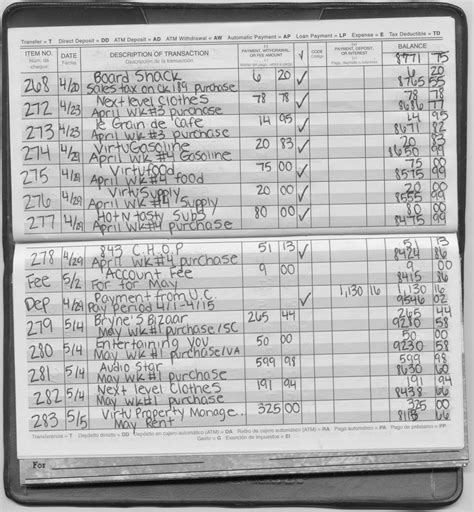 Transfer = T   Direct Deposit = DD   ATM Deposit = AD   ATM Withdrawal = AW   Automatic Payment = AP   Loan Payment = LP   Expense = E   Tax Deductible = TD
ITEM NO. DATE DESCRIPTION OF TRANSACTION PAYMENT, WITHDRAWAL OR FEE AMOUNT √ CODE PAYMENT, DEPOSIT OR INTEREST BALANCE
Núm. de cheque Fecha Descripción de la transacción 8771 75
268 4/20 Board Shack 6 20 √ 6 20
Sales tax on CK 189 purchase 8765 55
272 4/23 Next level Clothes 78 78 78 78
April WK #3 purchase 8686 77
273 4/23 le Grain de Cafe 14 95 14 95
April WK #3 purchase 8671 82
274 4/29 Virtu Gasoline 20 83 √ 20 83
April WK #4 Gasoline 8650 99
275 4/29 Virtu food 75 00 75 00
April WK #4 food 8575 99
276 4/29 Virtu Supply
April WK #4 Supply 8555 99
277 4/29 Hot N tasty Subs 80 00 √ 80 00
April WK #4 purchase 8475 99
278 4/29 843 C.H.O.P 51 13 √ 51 13
April WK #4 purchase 8424 86
Fee 5/2 Account Fee 9 00 9 00
For for May 8415 86
Dep 4/29 Payment from U.C. √ 1,130 16 1,130 16
Pay Period 4/1-4/15 9546 02
279 5/4 Bryne's Bazaar 265 44 265 44
May WK #1 purchase/SC 9280 58
280 5/4 Entertaining You 50 00 50 00
May WK #1 purchase/VA 9230 58
281 5/4 Audio Star 599 98 599 98
May WK #1 purchase 8630 60
282 5/4 Next level Clothes 191 94 191 94
May WK #1 purchase 8438 66
283 5/5 Virtu Property Manage... 325 00 325 00
May Rent 8113 66
Transferencia = T   Depósito directo = DD
Gasto = G   Exención de impuestos = EI
For